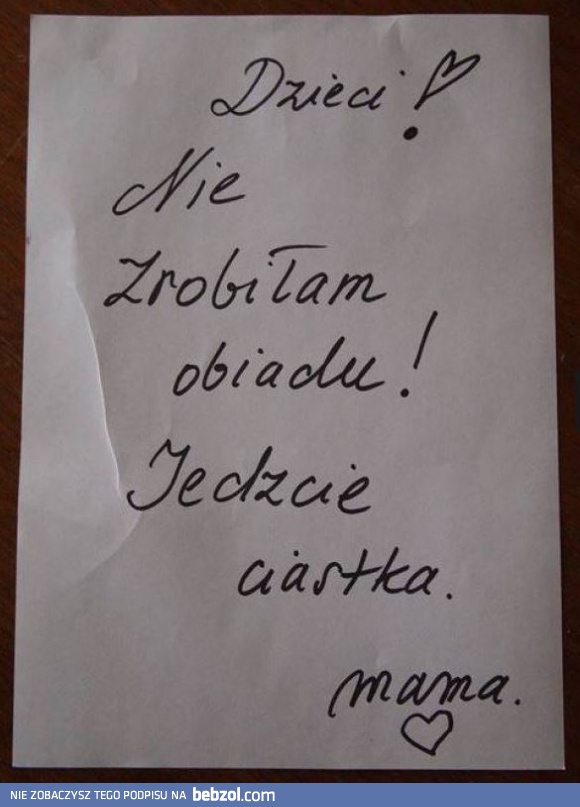 Dzieci!
Nie
zrobiłam
obiadu!
Jedzcie
ciastka.
mama.
NIE ZOBACZYSZ TEGO PODPISU NA bebzol.com